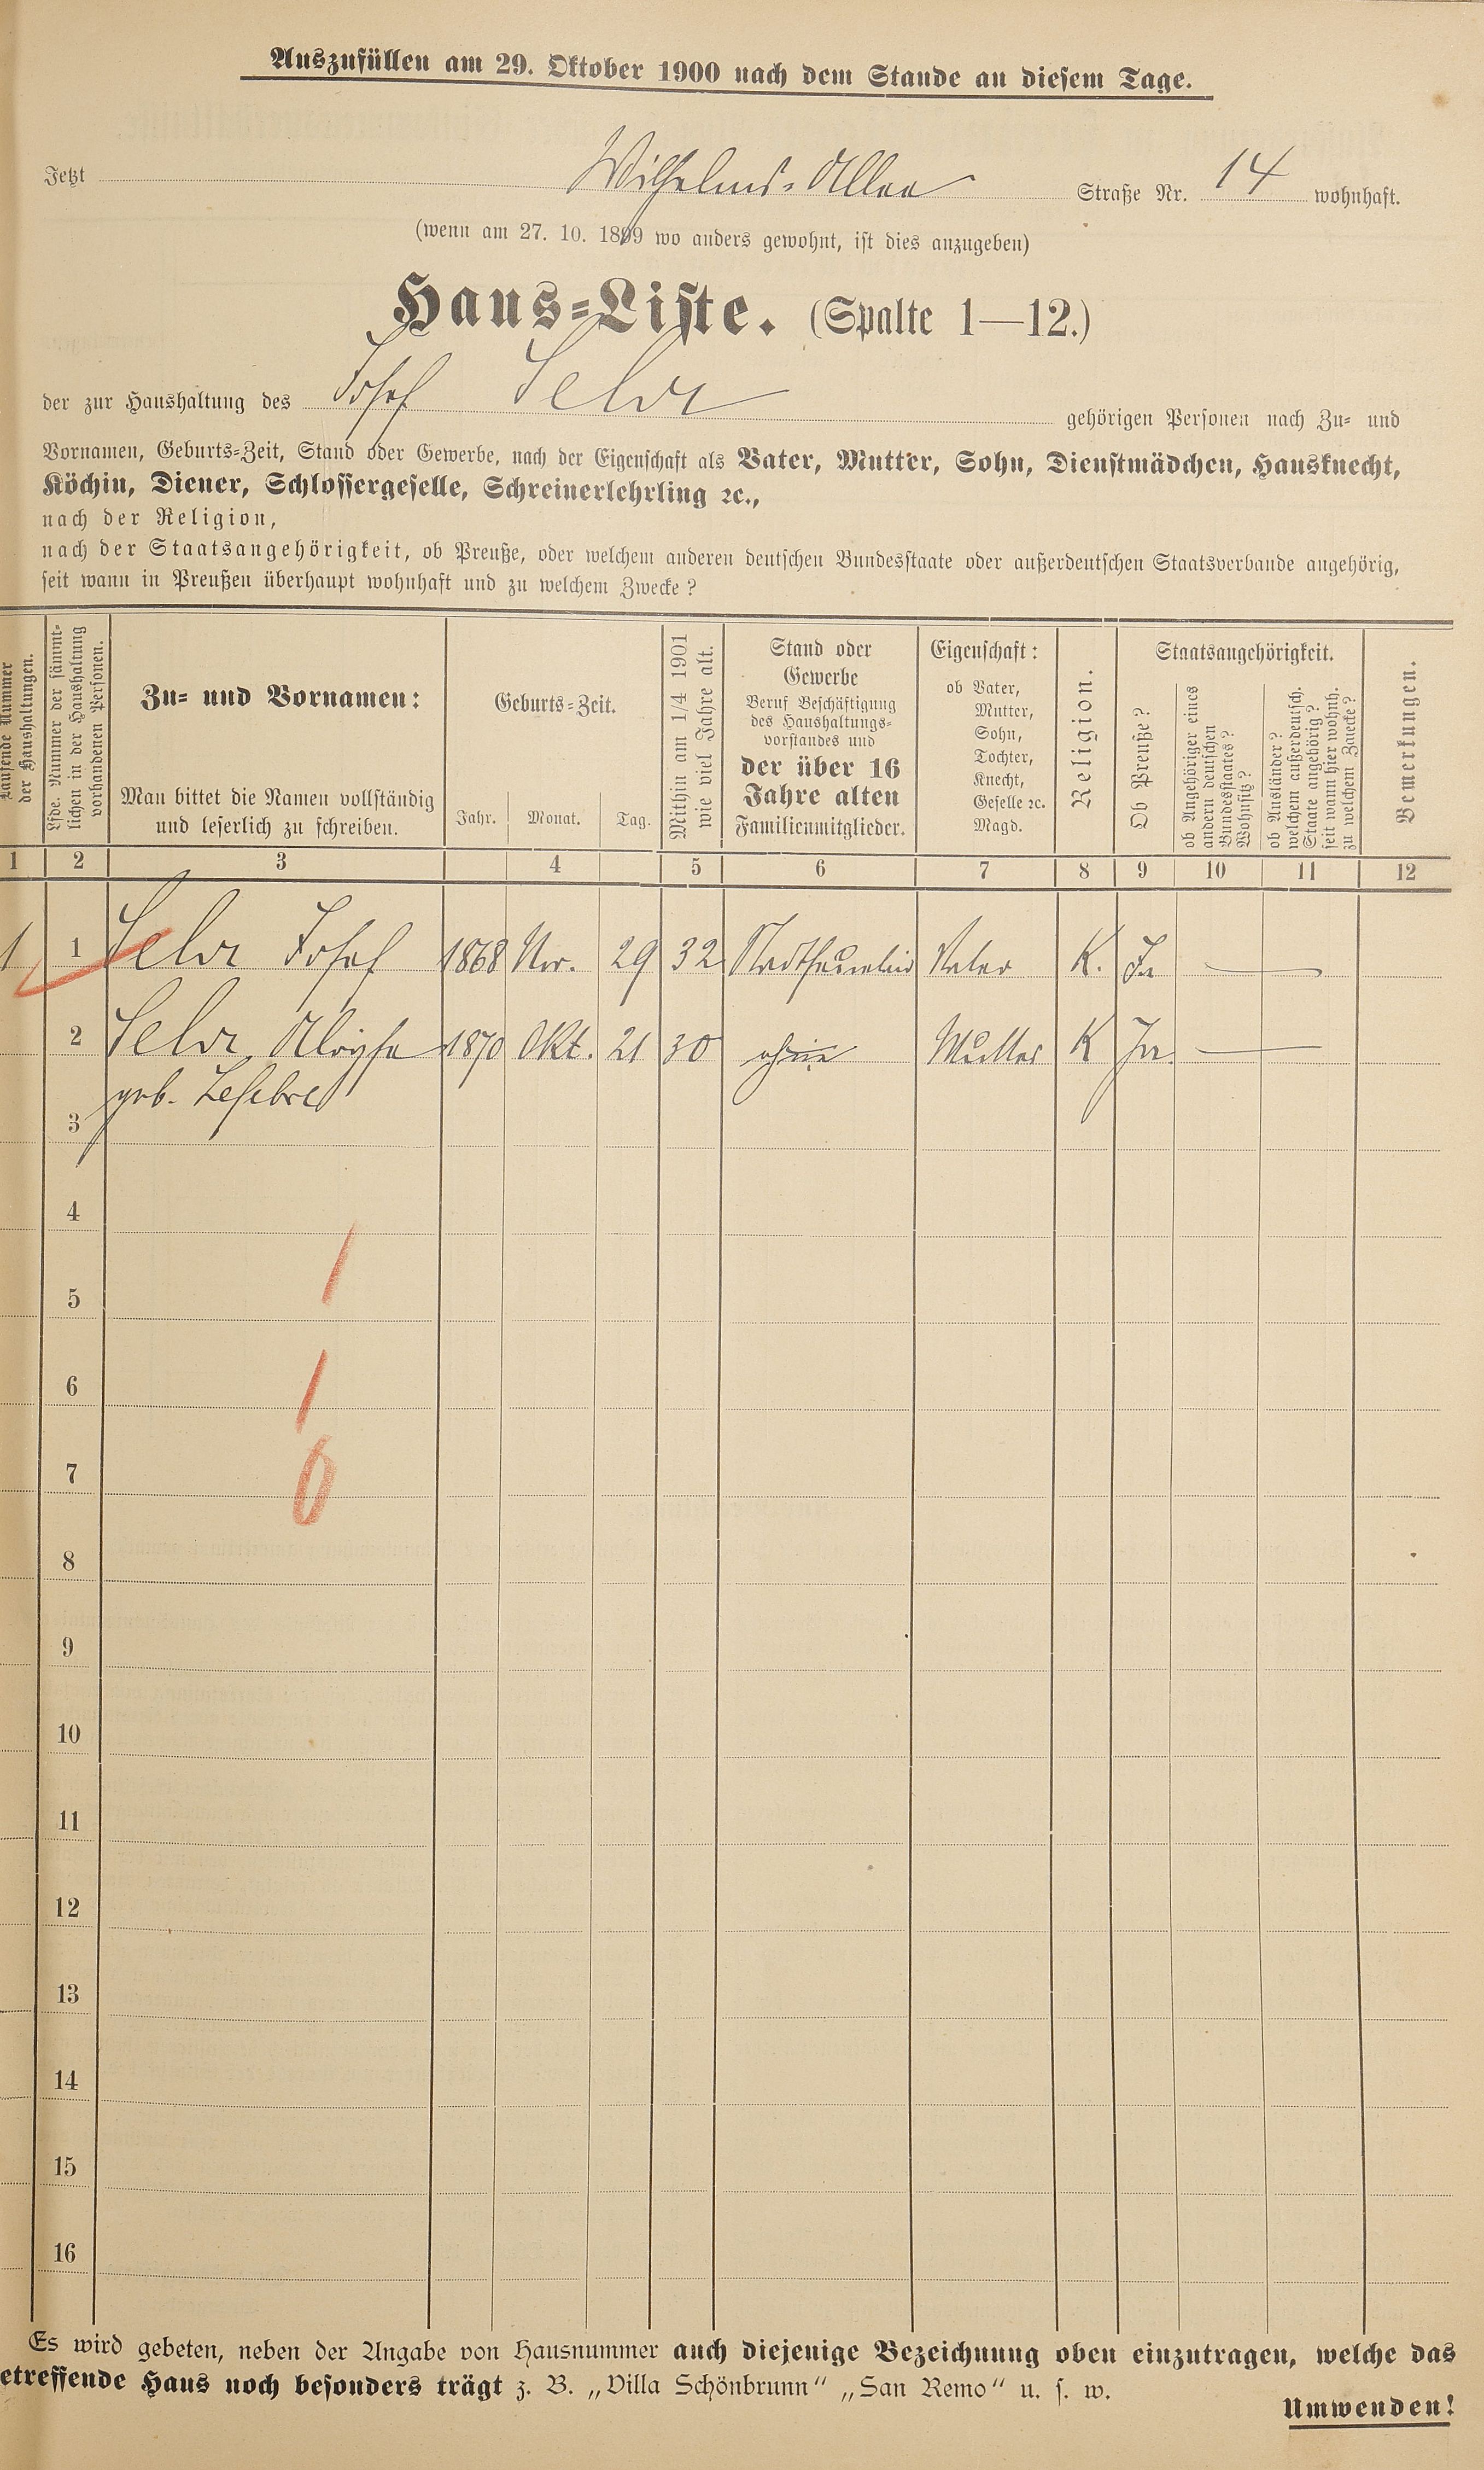 Auszufüllen am 29. Oktober 1900 nach dem Stande an diesem Tage.
Jetzt Wilhelms-Allee Straße Nr. 14 wohnhaft.
(wenn am 27. 10. 1899 wo anders gewohnt, ist dies anzugeben)
Haus-Liste. (Spalte 1—12.)
der zur Haushaltung des Josef gehörigen Personen nach Zu- und
Vornamen, Geburts-Zeit, Stand oder Gewerbe, nach der Eigenschaft als Vater, Mutter, Sohn, Dienstmädchen, Hausknecht,
Köchin, Diener, Schlossergeselle, Schreinerlehrling ꝛc.,
nach der Religion,
nach der Staatsangehörigkeit, ob Preuße, oder welchem anderen deutschen Bundesstaate oder außerdeutschen Staatsverbande angehörig,
seit wann in Preußen überhaupt wohnhaft und zu welchem Zwecke?
Laufende Nummer
der Haushaltungen.
Lfde. Nummer der sämmt-
lichen in der Haushaltung
vorhandenen Personen.
Zu- und Vornamen:
Man bittet die Namen vollständig
und leserlich zu schreiben.
Geburts-Zeit.
Jahr. Monat. Tag.
Mithin am 1/4 1901
wie viel Jahre alt.
Stand oder
Gewerbe
Beruf Beschäftigung
des Haushaltungs-
vorstandes und
der über 16
Jahre alten
Familienmitglieder.
Eigenschaft:
ob Vater,
Mutter,
Sohn,
Tochter,
Knecht,
Geselle ꝛc.
Magd.
Religion.
Staatsangehörigkeit.
Ob Preuße?
ob Angehöriger eines
andern deutschen
Bundesstaates?
Wohnsitz?
ob Ausländer?
welchem außerdeutsch.
Staate angehörig?
seit wann hier wohnh.
zu welchem Zwecke?
Bemerkungen.
1 2 3 4 5 6 7 8 9 10 11 12
1 1 Josef 1868 Nov. 29 32 Vater K. Ja —
2 Aloysa 1870 Okt. 21 30 ohne Mutter K Ja —
geb. Lefebre
3
4
1
5
6
1
7
0
8
9
10
11
12
13
14
15
16
Es wird gebeten, neben der Angabe von Hausnummer auch diejenige Bezeichnung oben einzutragen, welche das
etreffende Haus noch besonders trägt z. B. „Villa Schönbrunn“ „San Remo“ u. s. w.
Umwenden!